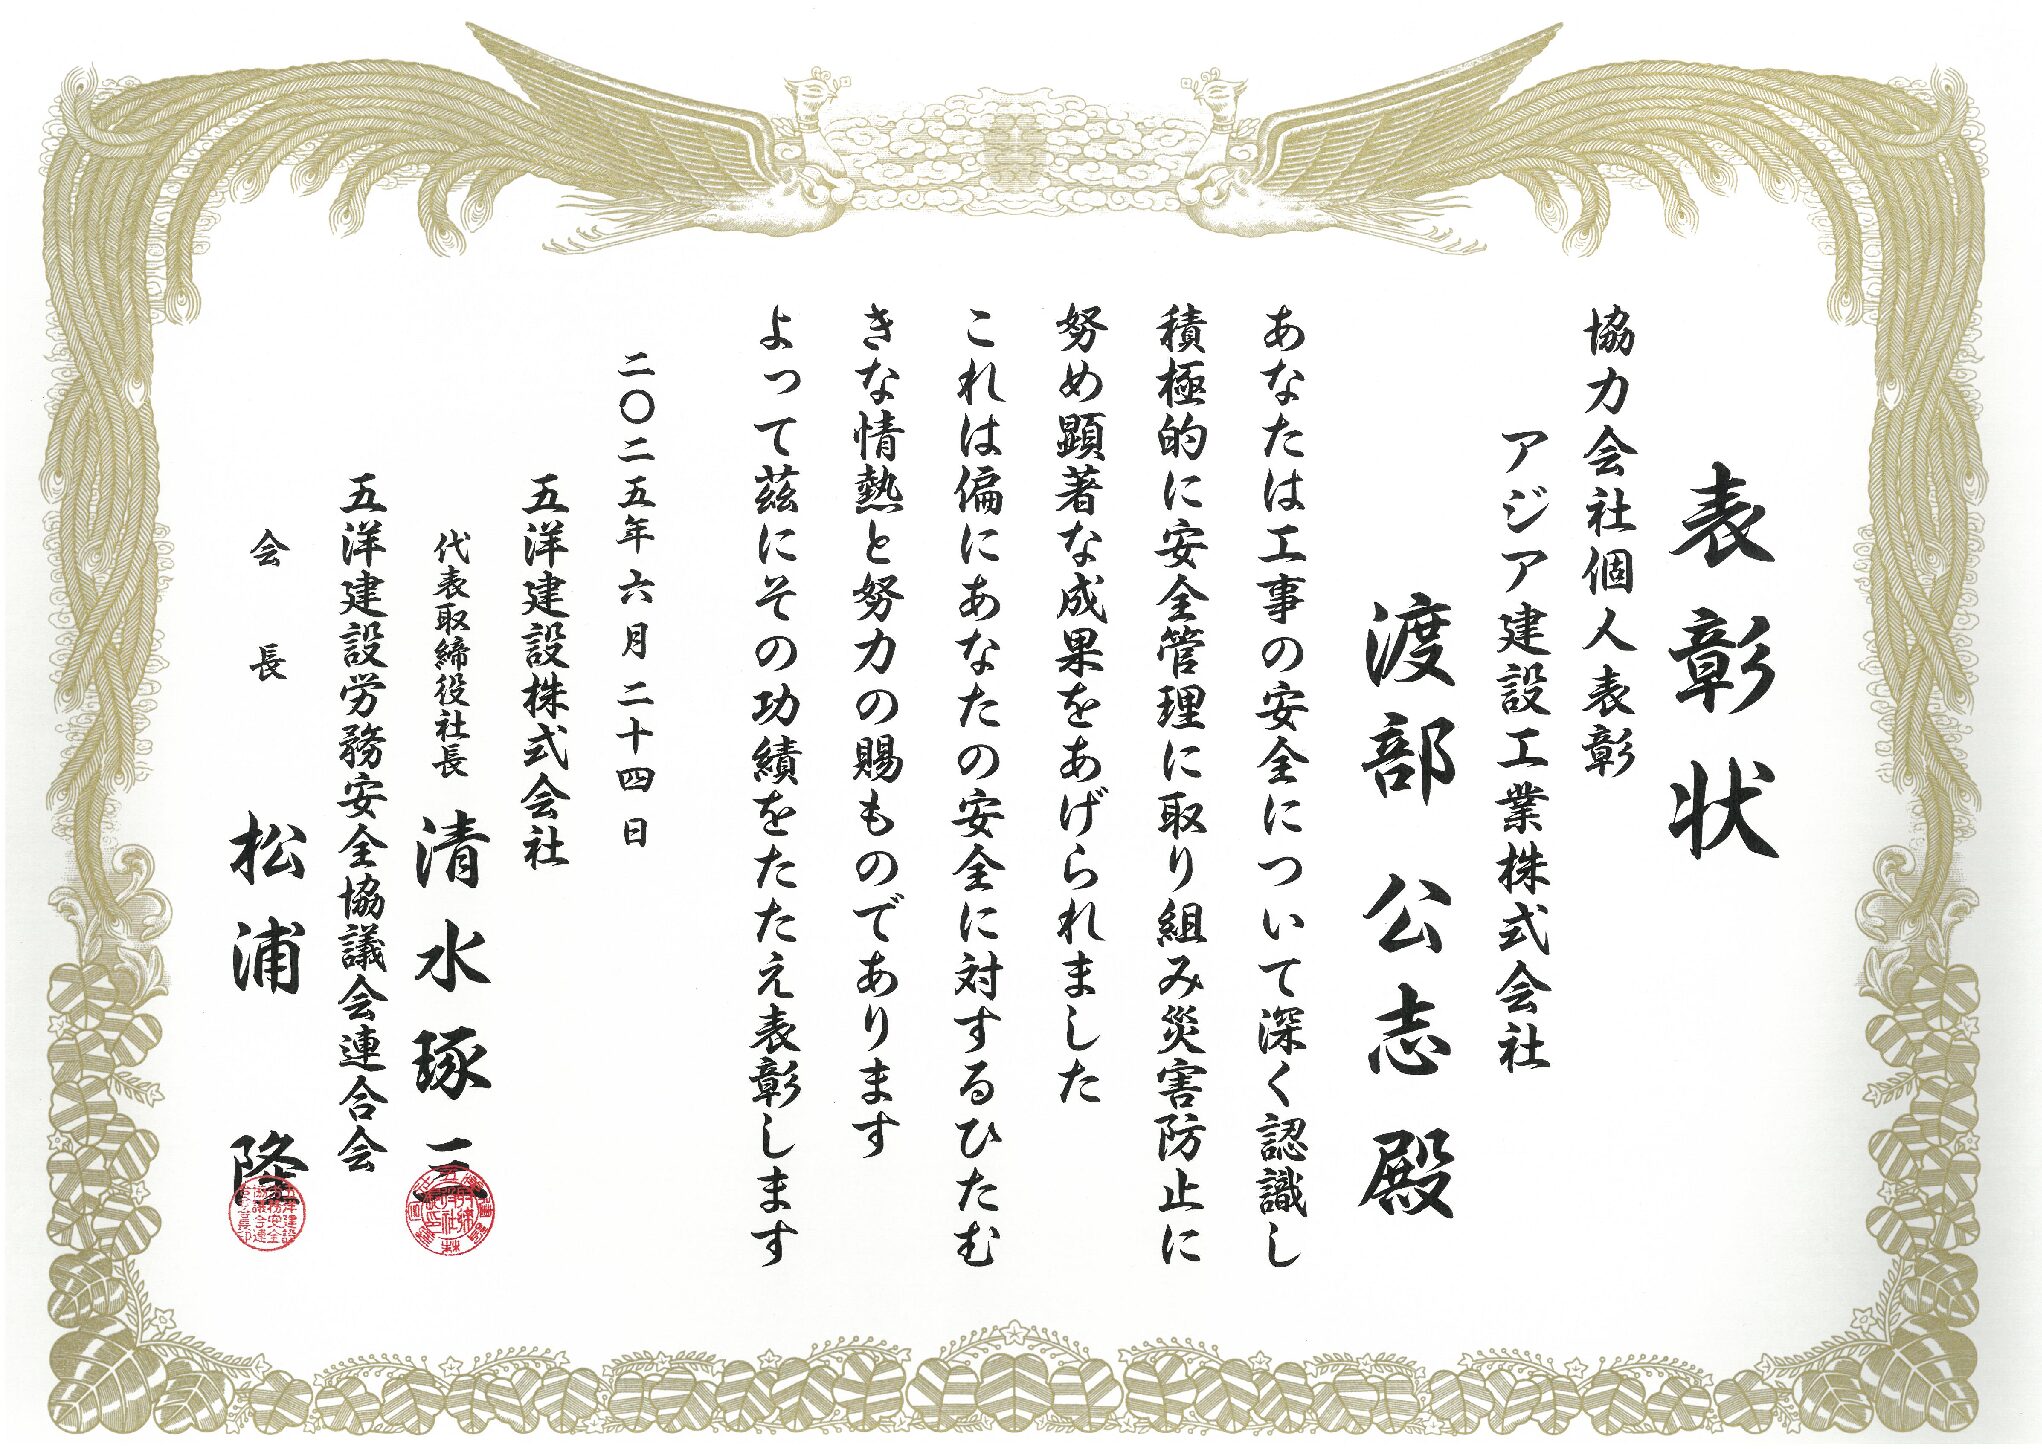 表彰状
協力会社個人表彰
アジア建設工業株式会社
渡部公志殿
あなたは工事の安全について深く認識し
積極的に安全管理に取り組み災害防止に
努め顕著な成果をあげられました
これは偏にあなたの安全に対するひたむ
きな情熱と努力の賜ものであります
よって茲にその功績をたたえ表彰します
二〇二五年六月二十四日
五洋建設株式会社
代表取締役社長 清水琢三
五洋建設労務安全協議会連合会
会長 松浦隆